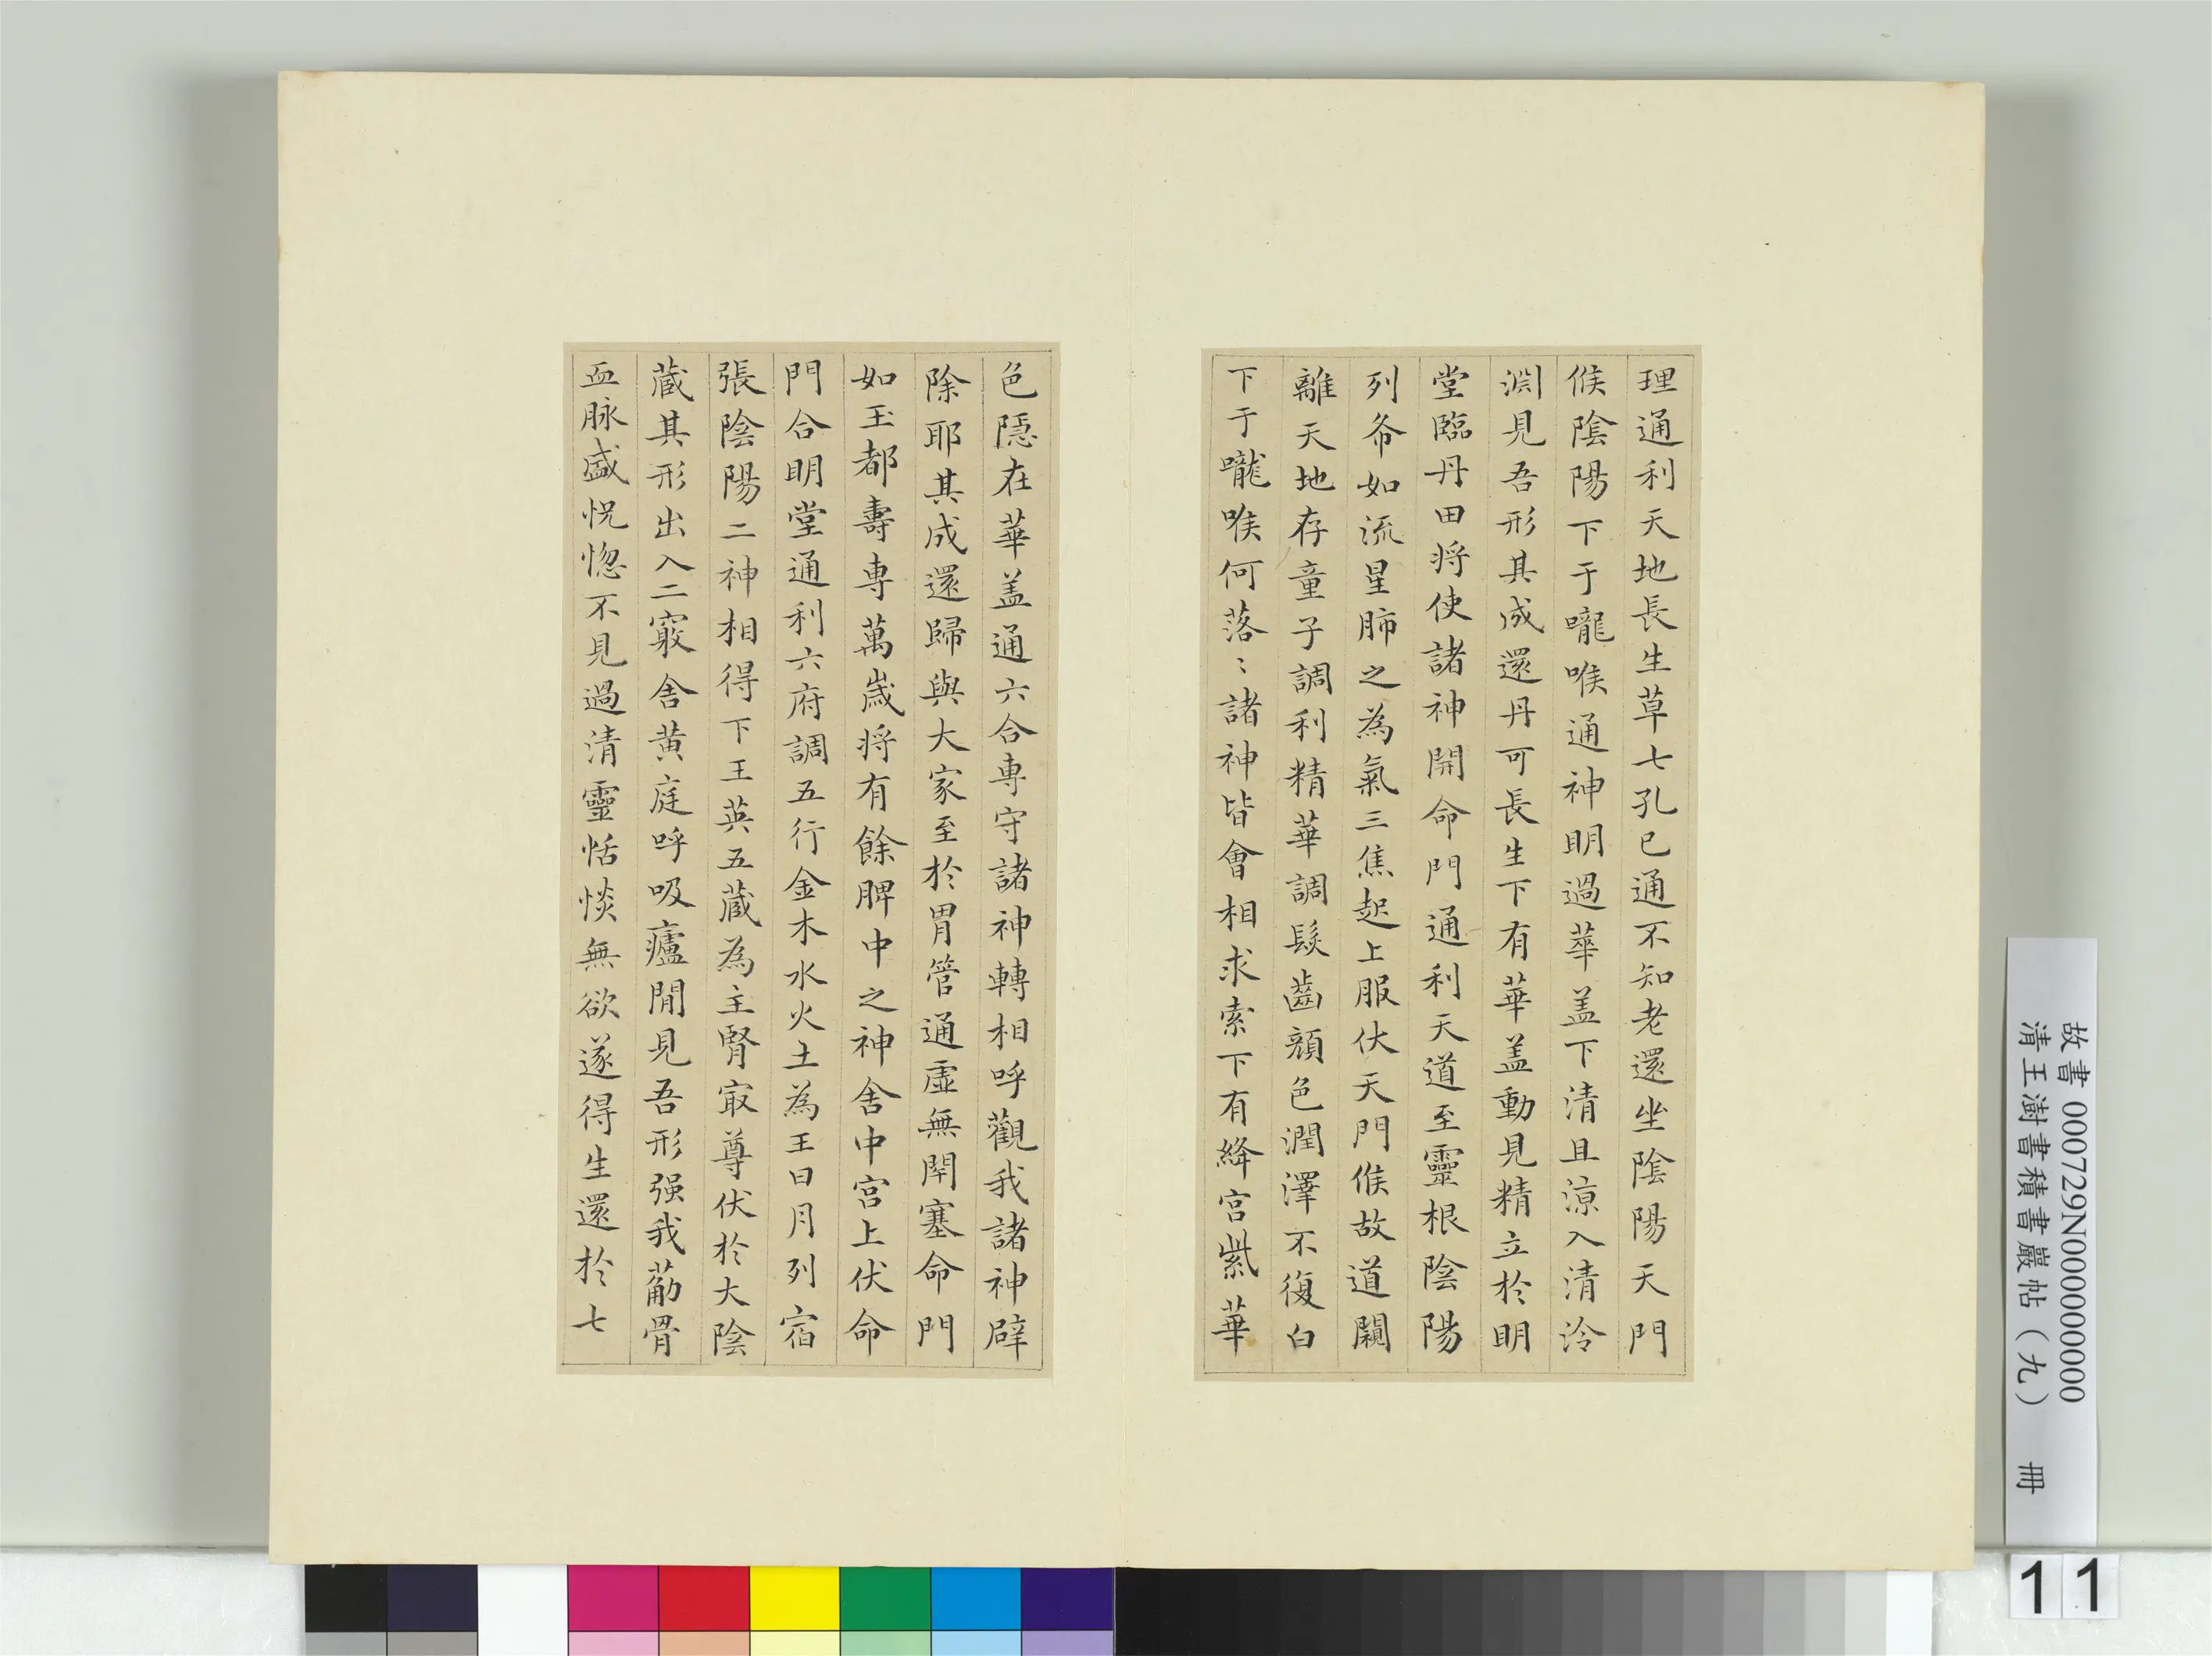 理通利天地長生草七孔已通不知老還坐陰陽天門
候陰陽下于嚨喉通神明過華盖下清且涼入清泠
淵見吾形其成還丹可長生下有華盖動見精立於明
堂臨丹田將使諸神開命門通利天道至靈根陰陽
列布如流星肺之為氣三焦起上服伏天門候故道闚
離天地存童子調利精華調髮齒顏色潤澤不復白
下于嚨喉何落〻諸神皆會相求索下有絳宮紫華
色隱在華盖通六合專守諸神轉相呼觀我諸神辟
除耶其成還歸與大家至於胃管通虛無閉塞命門
如玉都壽專萬歲將有餘脾中之神舍中宮上伏命
門合明堂通利六府調五行金木水火土為王日月列宿
張陰陽二神相得下玉英五藏為主腎㝡尊伏於大陰
藏其形出入二竅舍黃庭呼吸廬閒見吾形强我葪骨
血脉盛恍惚不見過清靈恬惔無欲遂得生還於七
故書 000729N000000000
清王澍書積書巖帖（九） 冊
11